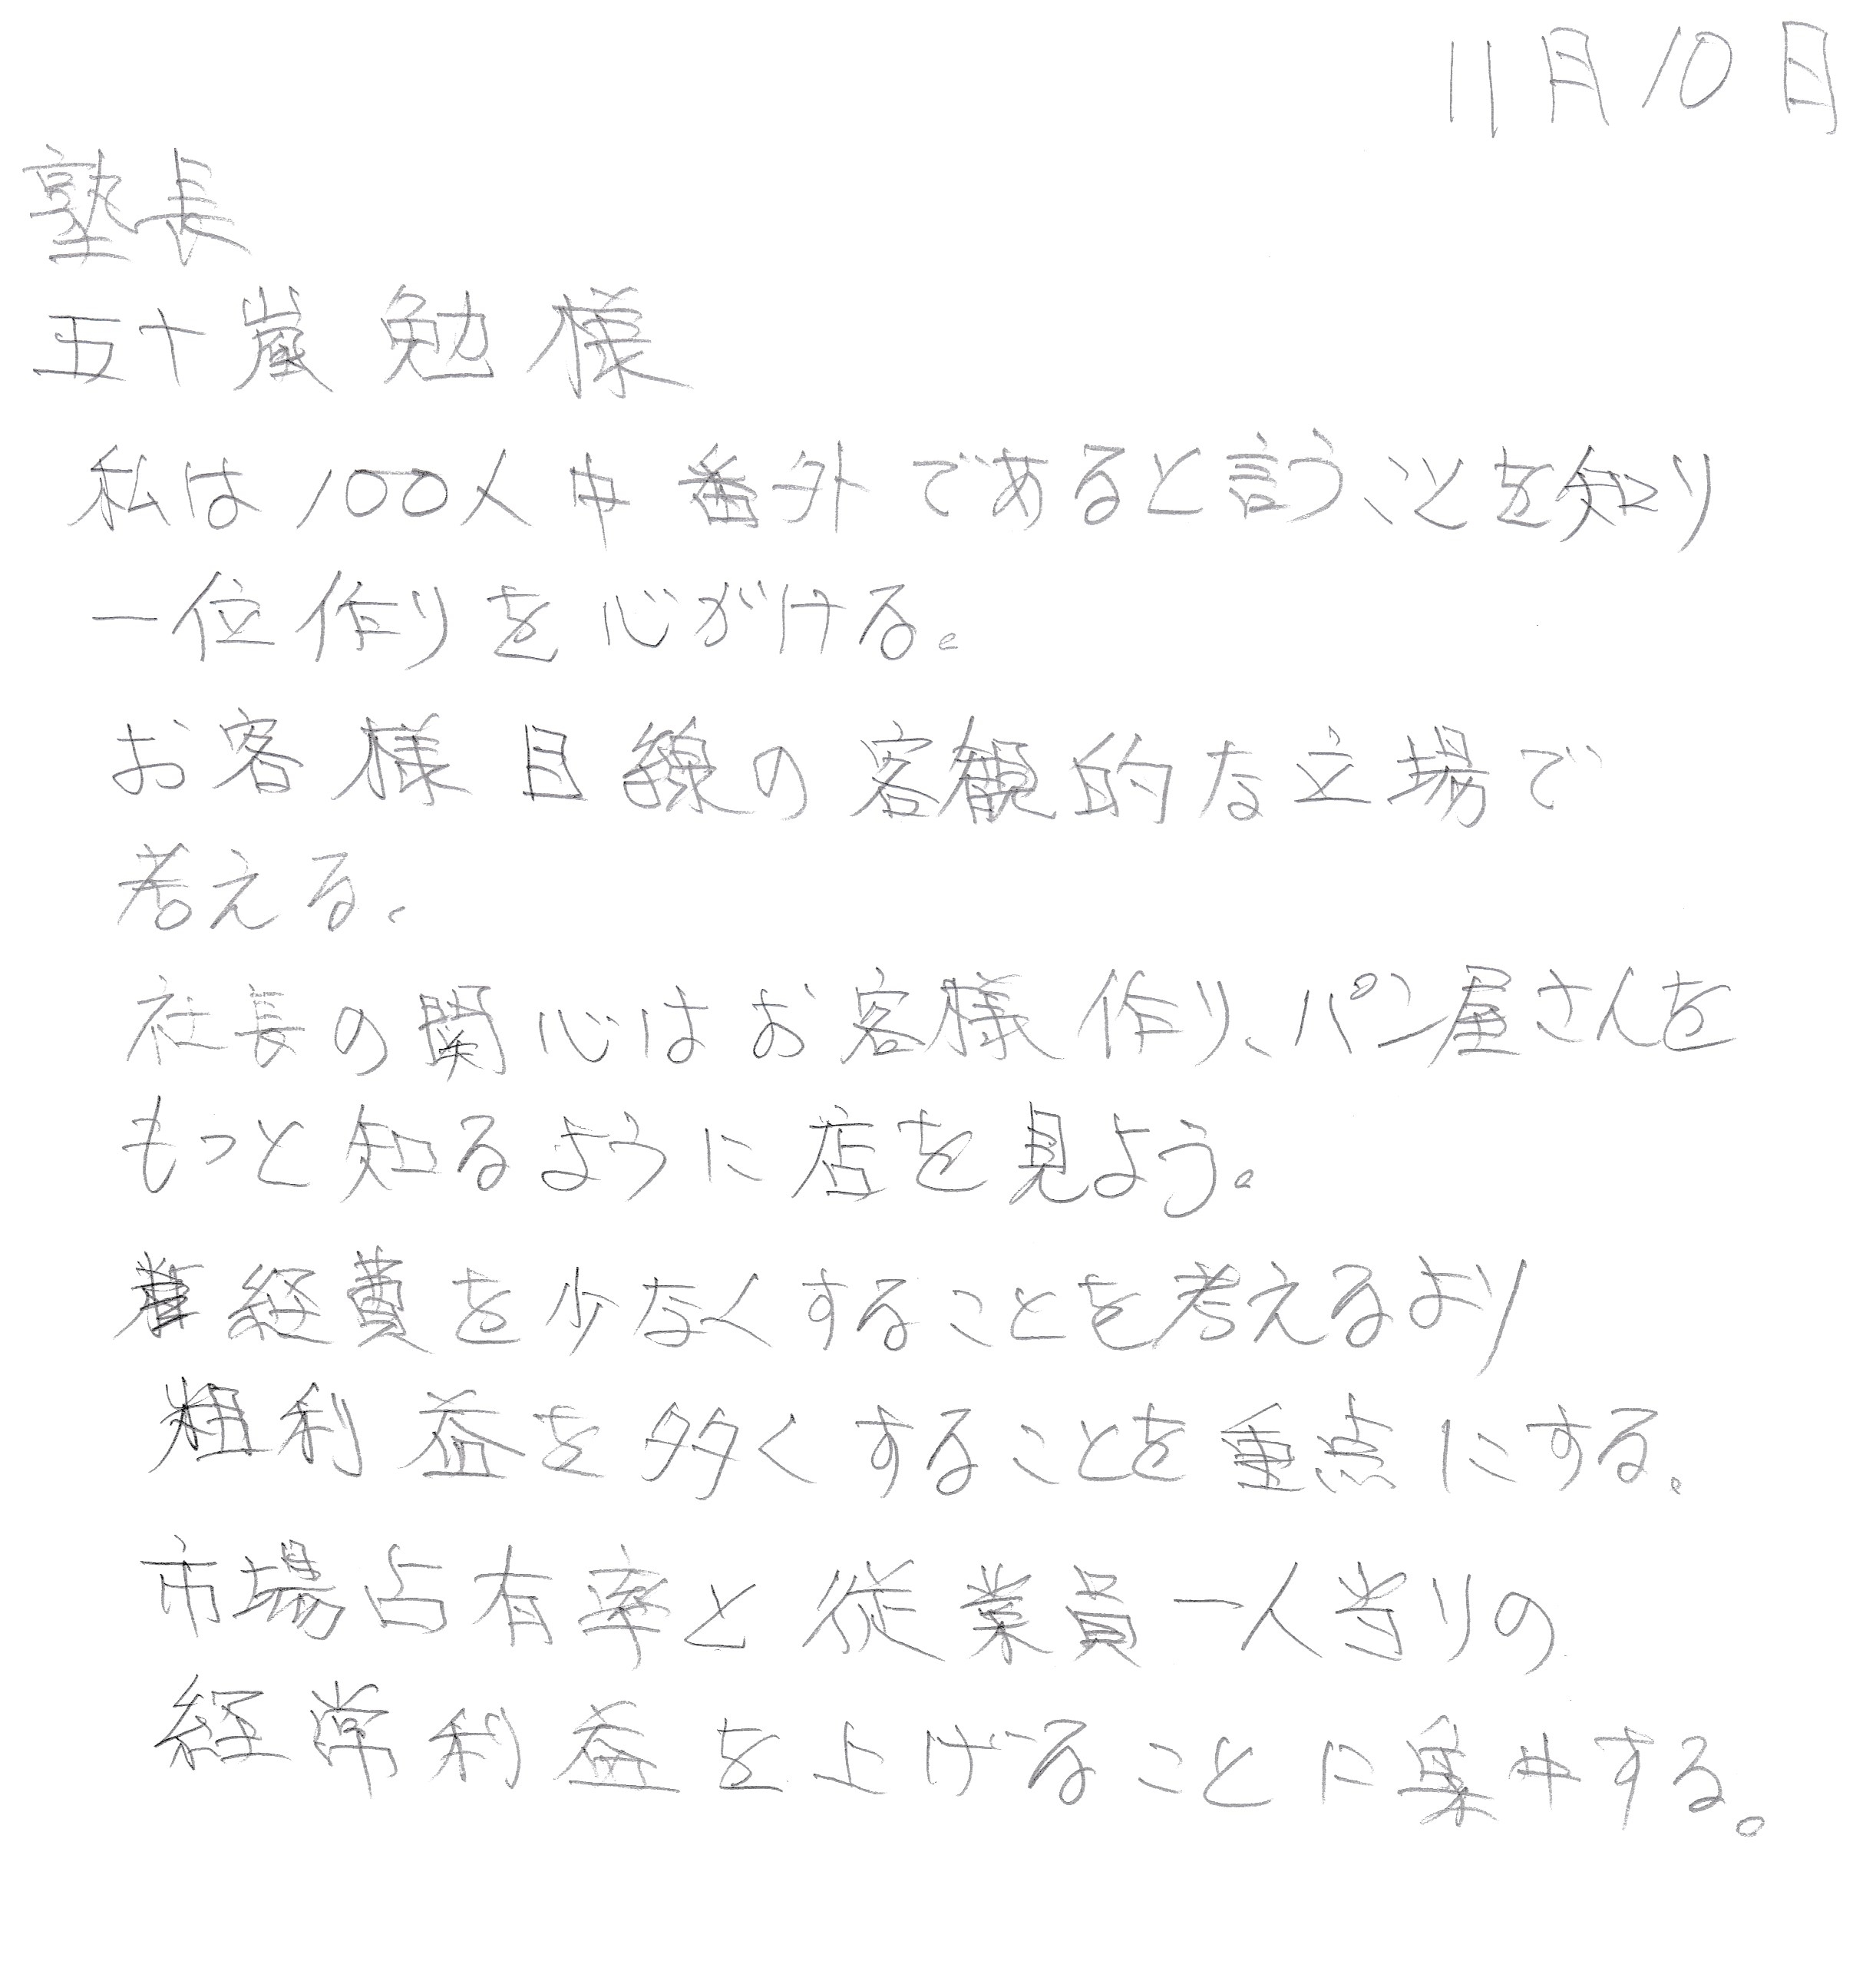 11月10日
塾長
五十嵐 勉 様
私は100人中番外であると言うことを知り
一位作りを心がける。
お客様目線の客観的な立場で
考える。
社長の関心はお客様作り、パン屋さんを
もっと知るように店を見よう。
経費を少なくすることを考えるより
粗利益を多くすることを重点にする。
市場占有率と従業員一人当りの
経常利益を上げることに集中する。